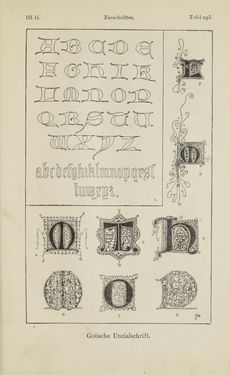 III. G.
Zierschriften.
Tafel 191.
A B C D E
F G H I K L
M N O P
Q R S T U
W X Y Z
abcdefghiklmnopqrsſ
tuwxyz.
M T H
M O D
Gotische Uncialschrift.